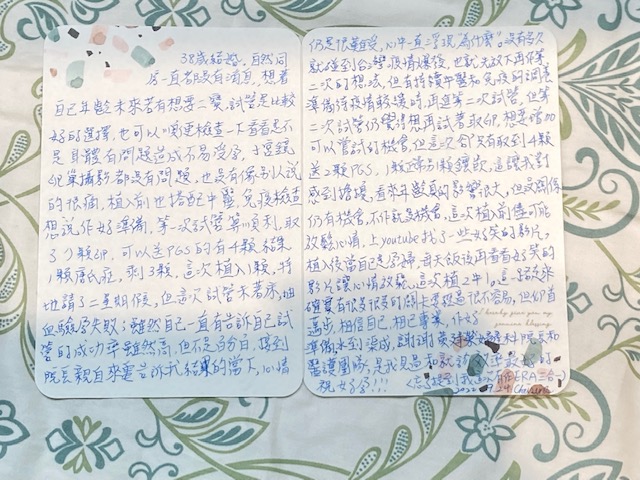 38歲結婚,自然同
房一直都沒有消息,想著
自己年齡未來若有想要二寶,試管是比較
好的選擇,也可以順便檢查一下看看是不
是身體有問題造成不易受孕,
卵巢攝影都沒有問題,也沒有像別人說
的很痛,植入前也搭配中醫,免疫檢查
想說作好準備,第一次試管算順利,取
了 顆卵,可以送PGS的有4顆結果
1顆唐氏症,剩3顆,這次植入1顆,特
地請了二星期假,但這次試管未著床,抽
血驗孕失敗;雖然自己一直有告訴自己試
管的成功率雖然高,但不是百分百,接到
院長親自來電告訴我結果的當下,心情
仍是很難受,心中一直浮現"為什麼"。沒有多久
就碰到台灣疫情爆發,也就先放下再作第
二次的想法,但有持續中醫和免疫的調養
準備待疫情較緩時,再進第二次試管,但第
二次試管仍覺得想再試著取卵,想要增加
可以嘗試的機會,但這次 只有取到4顆
送2顆PGS,1顆正常1顆鑲嵌,這讓我有點
感到擔憂,看來年齡真的影響很大,但沒關係
仍有機會,不作就沒機會,這次植入前儘可能
放鬆心情,上youtube找了一些好笑的影片,
植入後當自己是孕婦,每天飯後再看看好笑的
影片讓心情放鬆,這次植2中1。這一路走來
確實有很多很多的關卡要經過很不容易,但仰首
邁步,相信自己,相信專業,作好
準備,水到渠成,謝謝 院長和
醫護團隊,是我見過
祝好孕!!!
(忘了提到我 有作ERA三合一)
2022